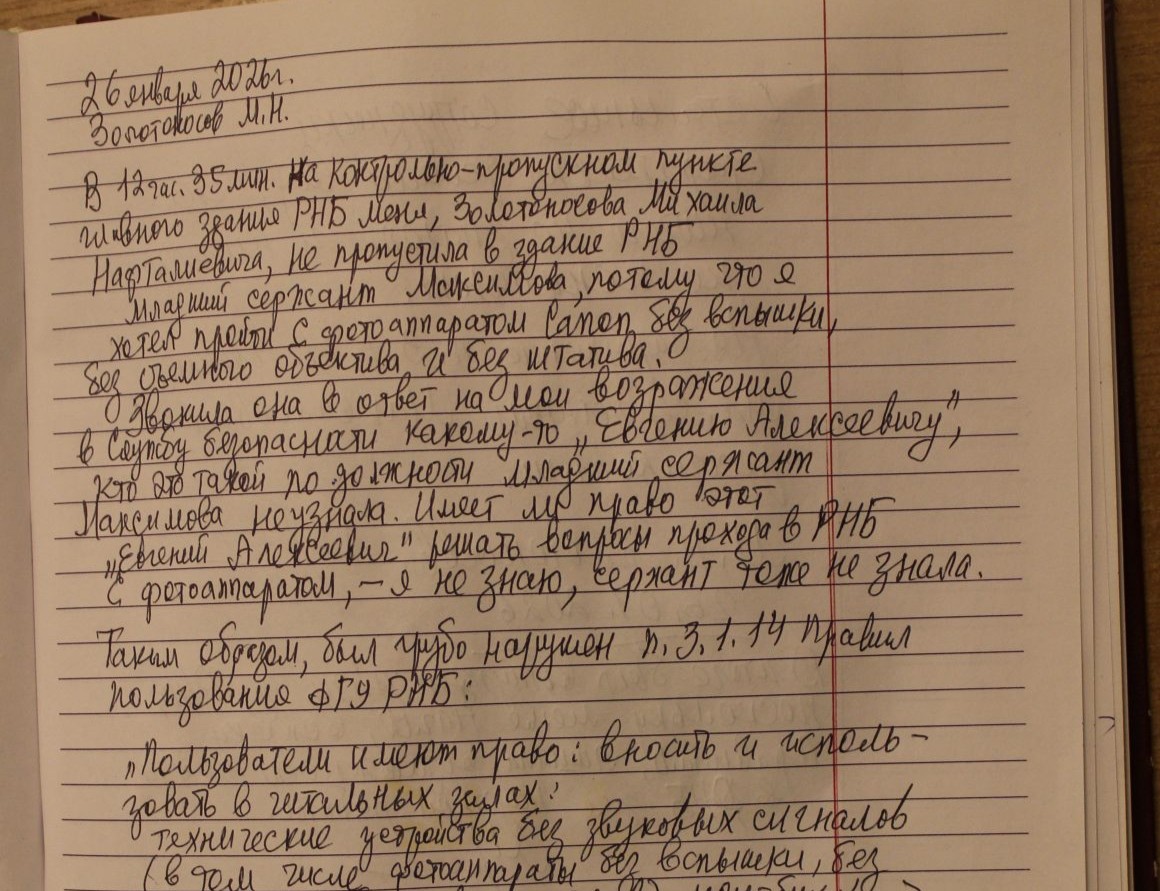 26 января 2026г.
Золотоносов М.Н.
В 12 час. 35 мин. На контрольно-пропускном пункте
главного здания РНБ меня, Золотоносова Михаила
Нафталиевича, не пропустила в здание РНБ
младший сержант Максимова, потому что я
хотел пройти с фотоаппаратом Canon без вспышки,
без съемного объектива и без штатива.
Звонила она в ответ на мои возражения
в Службу безопасности какому-то „Евгению Алексеевичу",
кто это такой по должности младший сержант
Максимова не узнала. Имеет ли право этот
„Евгений Алексеевич" решать вопросы прохода в РНБ
с фотоаппаратом, – я не знаю, сержант тоже не знала.
Таким образом, был грубо нарушен п. 3.1.14 Правил
пользования ФГУ РНБ:
„Пользователи имеют право: вносить и исполь-
зовать в читальных залах:
технические устройства без звуковых сигналов
(в том числе фотоаппараты без вспышки, без